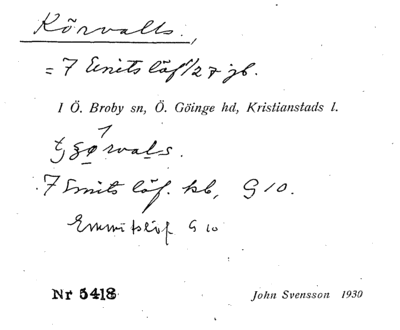 Körvalls,
= 7 Emitslöf 1/27 jb.
1 Ö. Broby sn, Ö. Göinge hd, Kristianstads l.
7 Emits löf. kb, G 10.
Emmitslöf G 10
Nr 5418 John Svensson 1930